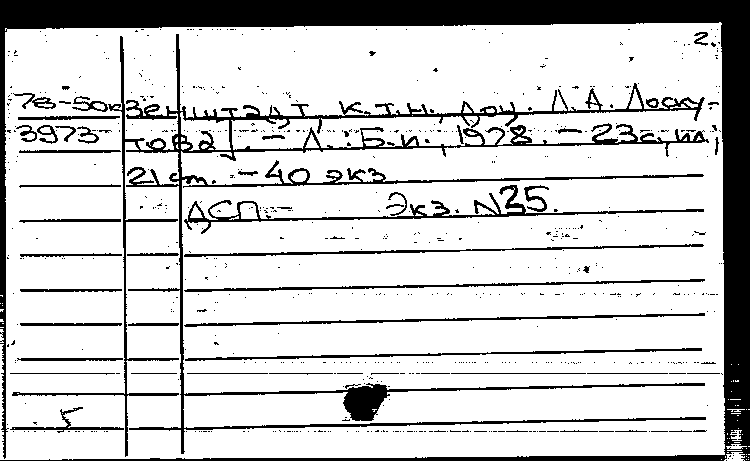 2.
78-50к зенштадт, к.т.н., доц. Л.А. Лоску-
3973 това]. - Л.: Б.и., 1978. - 23с, ил.;
21 см. - 40 экз.
ДСП. Экз. N25.
5